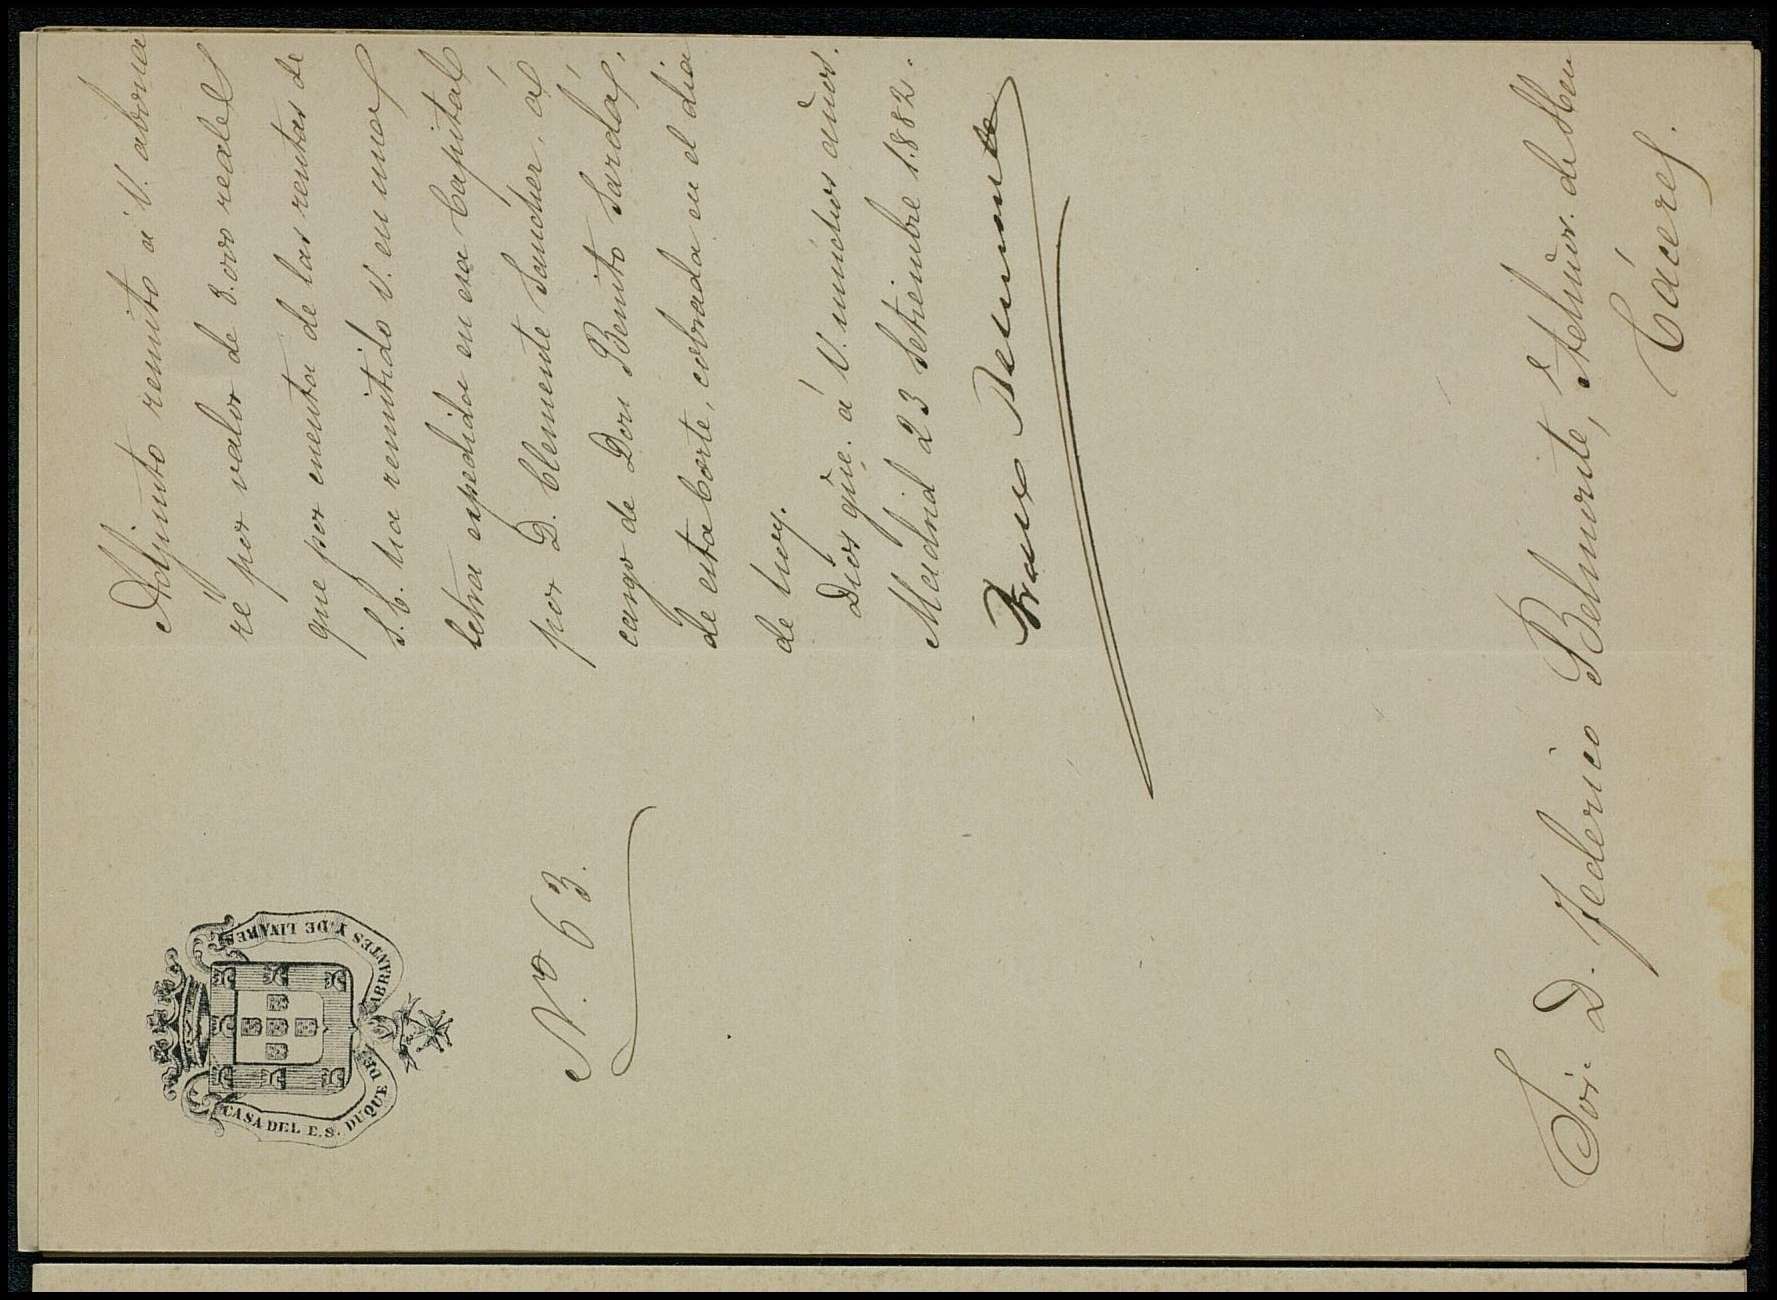 CASA DEL E.S. DUQUE DE ABRANTES Y DE LINARES
N.º 63.
Adjunto remito á V. abona
ré por valor de 8.000 reales
que por cuenta de las rentas de
S.E. ha remitido V. en una
letra expedida en esa Capital
por D. Clemente Sanchez, á
cargo de Don Benito Sardá,
de esta Corte, cobrada en el dia
de hoy.
Dios gũe. á V. muchos años.
Madrid 23 Setiembre 1.882.
Belmonte
Sor. D. Federico Belmonte,
Cáceres.